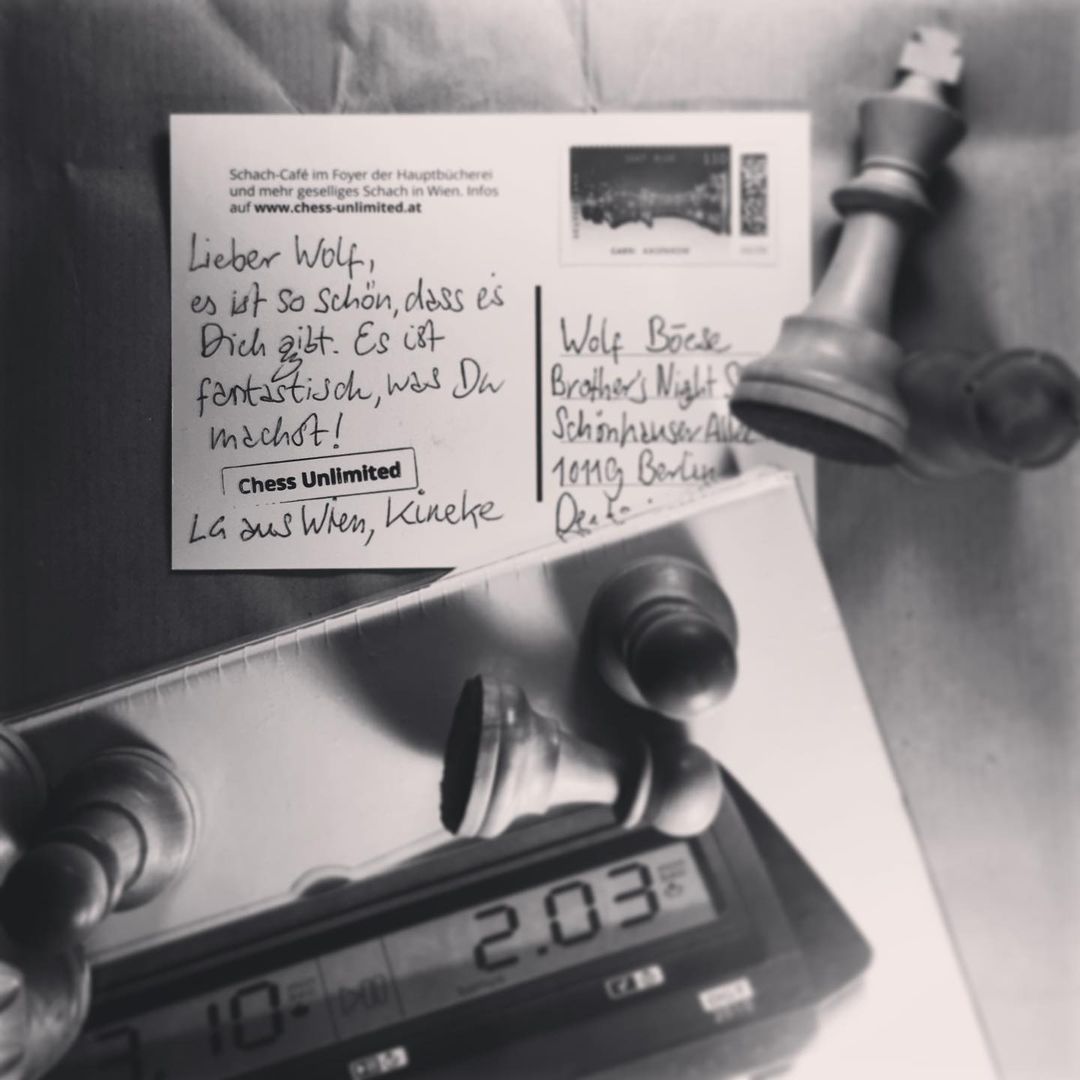 Schach-Café im Foyer der Hauptbücherei
und mehr geselliges Schach in Wien. Infos
auf www.chess-unlimited.at
Lieber Wolf,
es ist so schön, dass es
Dich gibt. Es ist
fantastisch, was Du
machst!
Chess Unlimited
LG aus Wien, Kineke
110
Wolf Böese
Brother's Night
Schönhauser Allee
10119 Berlin
2.03
10